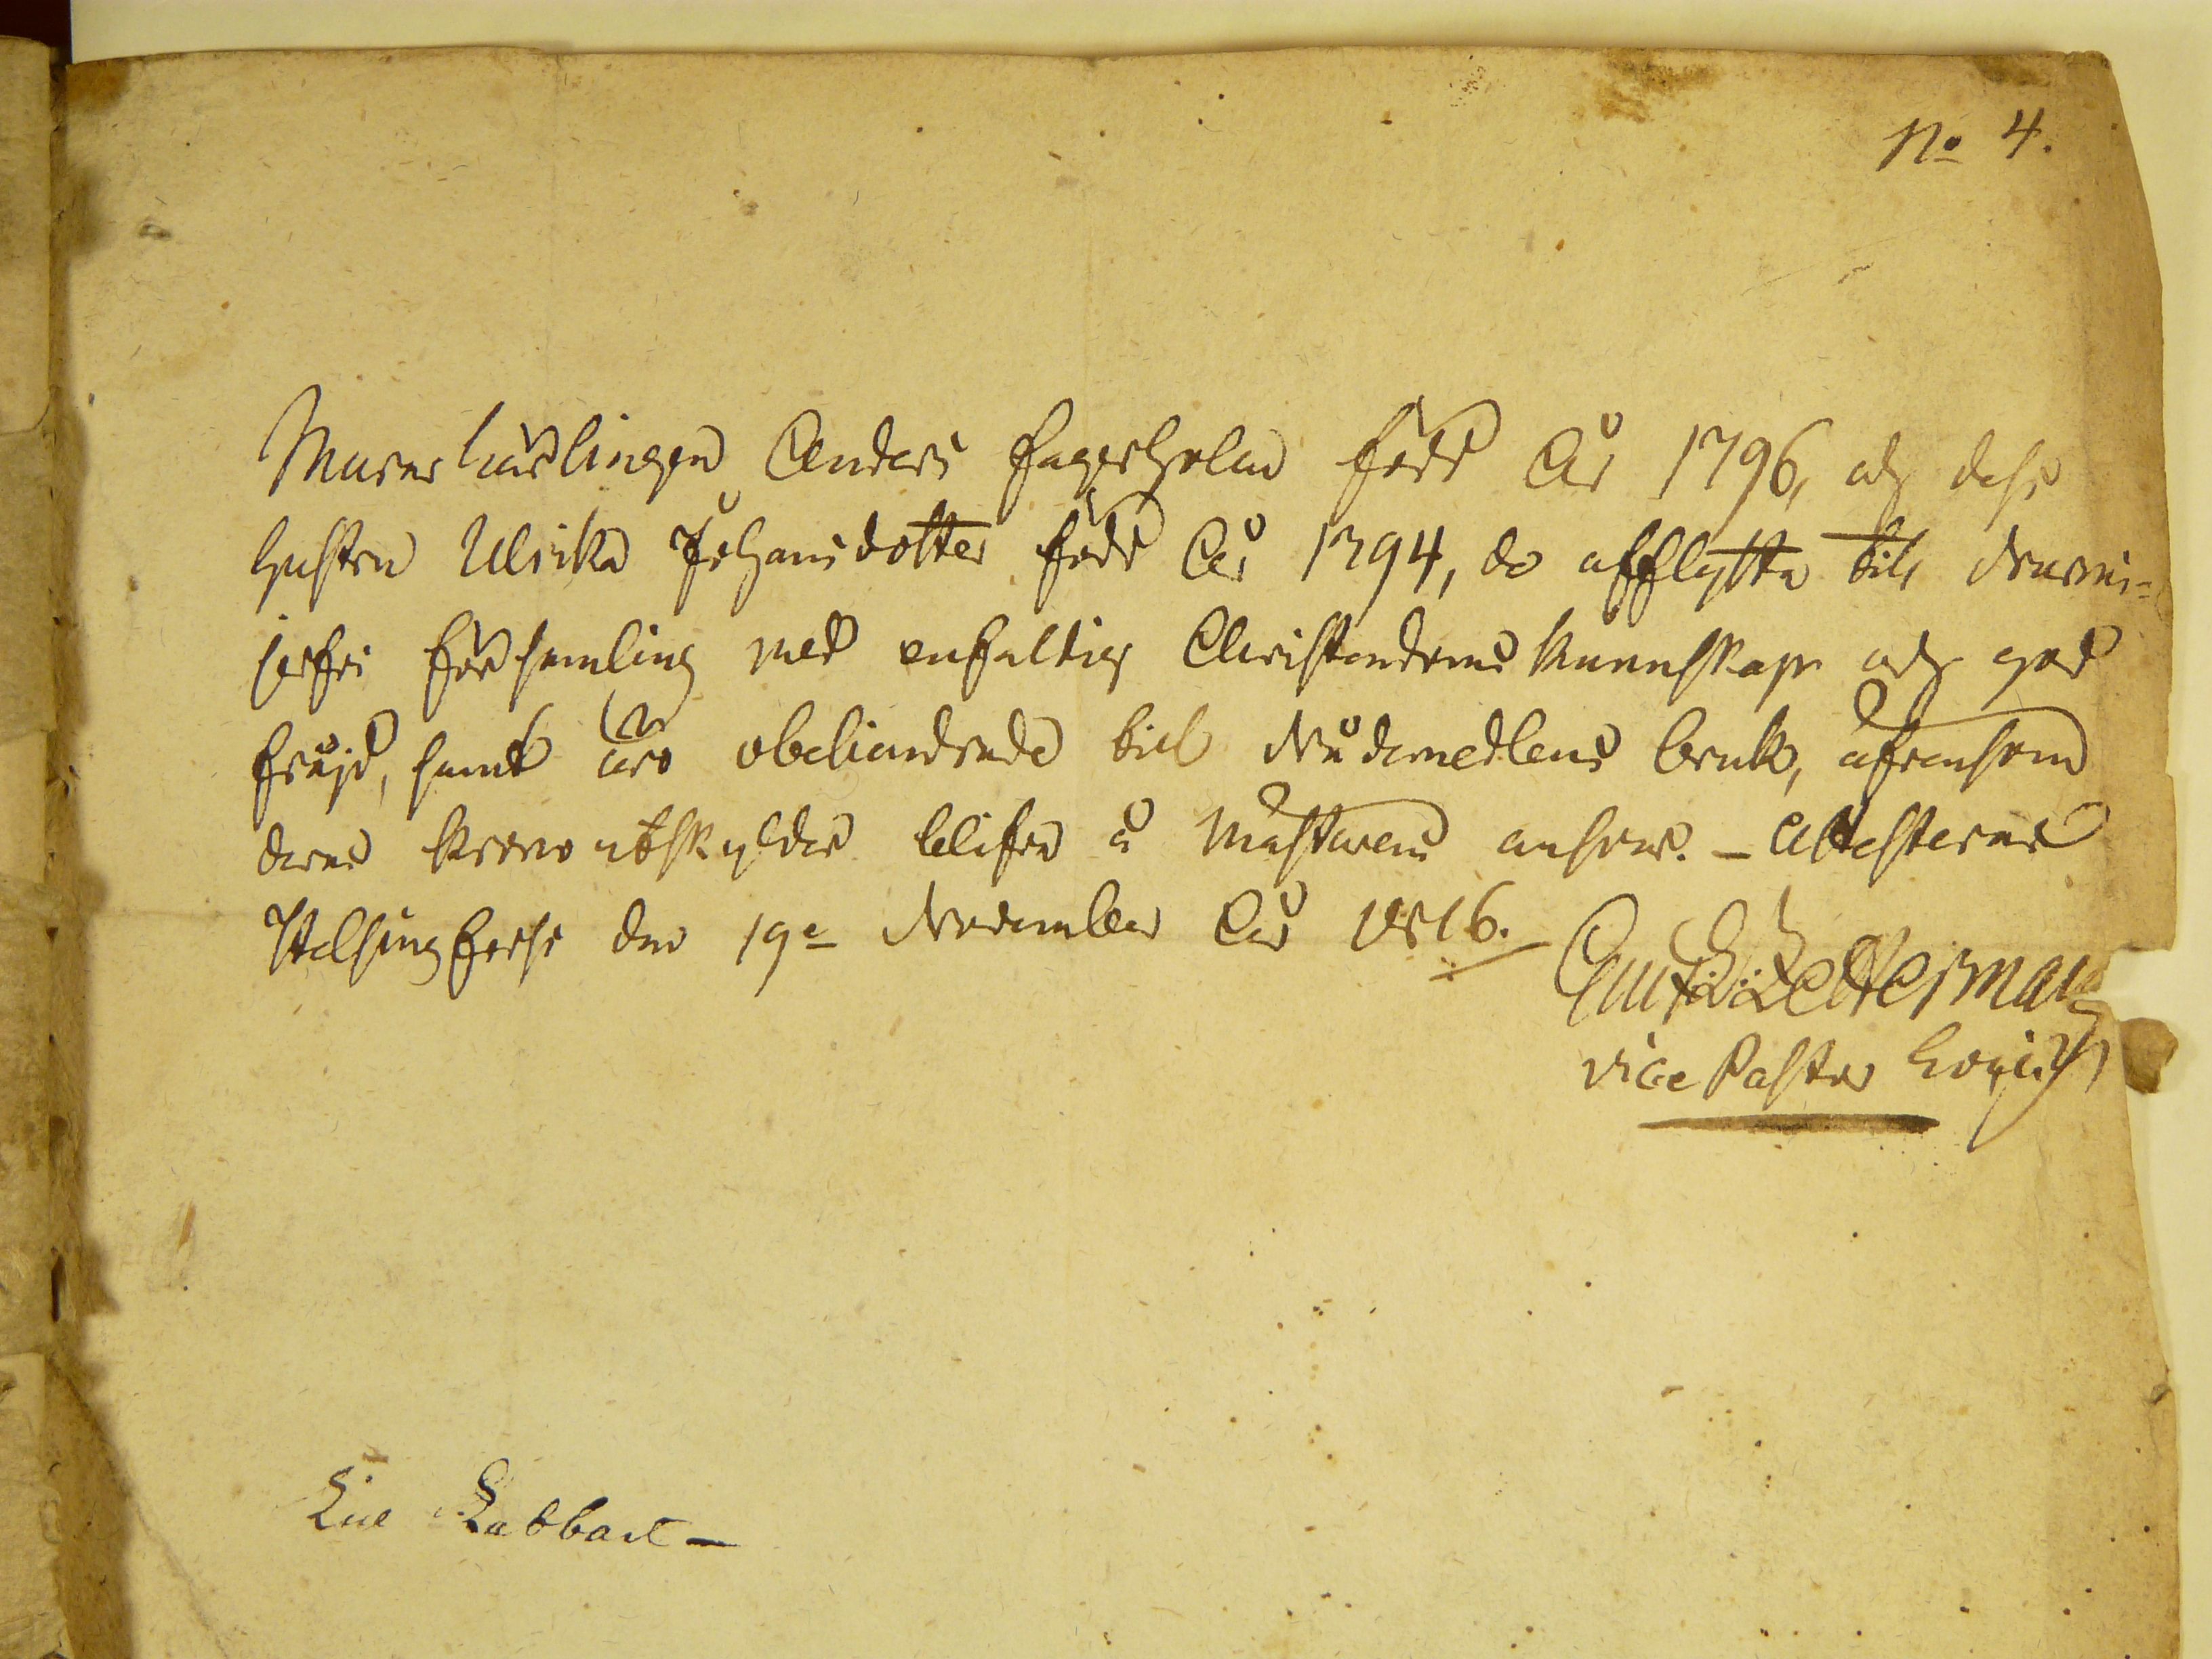 No 4.
Murarlärlingen Anders Fagerholm född År 1796, och dess
hustru Ulrika Johansdotter född År 1794, de afflytta till Nurmi-
järfvi församling med enfaldig Christendoms kunnskap och god
frägd, samt äro obehindrade till Nådemedlens bruk, äfvensom
deras krono utskylder blifva å Mästarens ansvar. – Attesterar
Helsingfors den 19de November År 1816.
Zetterman
vice Pastor
Rabbad –